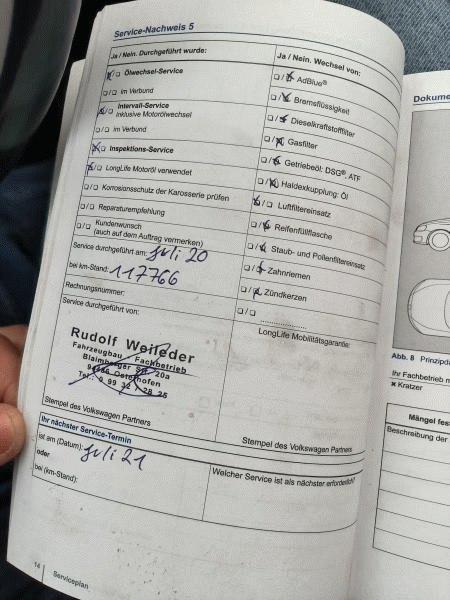 Service-Nachweis 5
Ja / Nein. Durchgeführt wurde:
Ölwechsel-Service
im Verbund
Intervall-Service
inklusive Motorölwechsel
im Verbund
Inspektions-Service
LongLife Motoröl verwendet
Korrosionsschutz der Karosserie prüfen
Reparaturempfehlung
Kundenwunsch
(auch auf dem Auftrag vermerken)
Service durchgeführt am: Juli 20
bei km-Stand: 117766
Rechnungsnummer:
Service durchgeführt von:
Rudolf Weileder
Fahrzeugbau - Fachbetrieb
Str. 20a
Osterhofen
Tel.: 0 99 32 / 28 25
Stempel des Volkswagen Partners
Ja / Nein. Wechsel von:
AdBlue®
Bremsflüssigkeit
Dieselkraftstofffilter
Gasfilter
Getriebeöl: DSG®, ATF
Haldexkupplung: Öl
Luftfiltereinsatz
Reifenfüllflasche
Staub- und Pollenfiltereinsatz
Zahnriemen
Zündkerzen
LongLife Mobilitätsgarantie:
Stempel des Volkswagen Partners
Ihr nächster Service-Termin
ist am (Datum): Juli 21
oder
bei (km-Stand):
Welcher Service ist als nächster erforderlich?
14
Serviceplan
Dokume
Abb. 8 Prinzipda
Ihr Fachbetrieb m
× Kratzer
Mängel fes
Beschreibung der